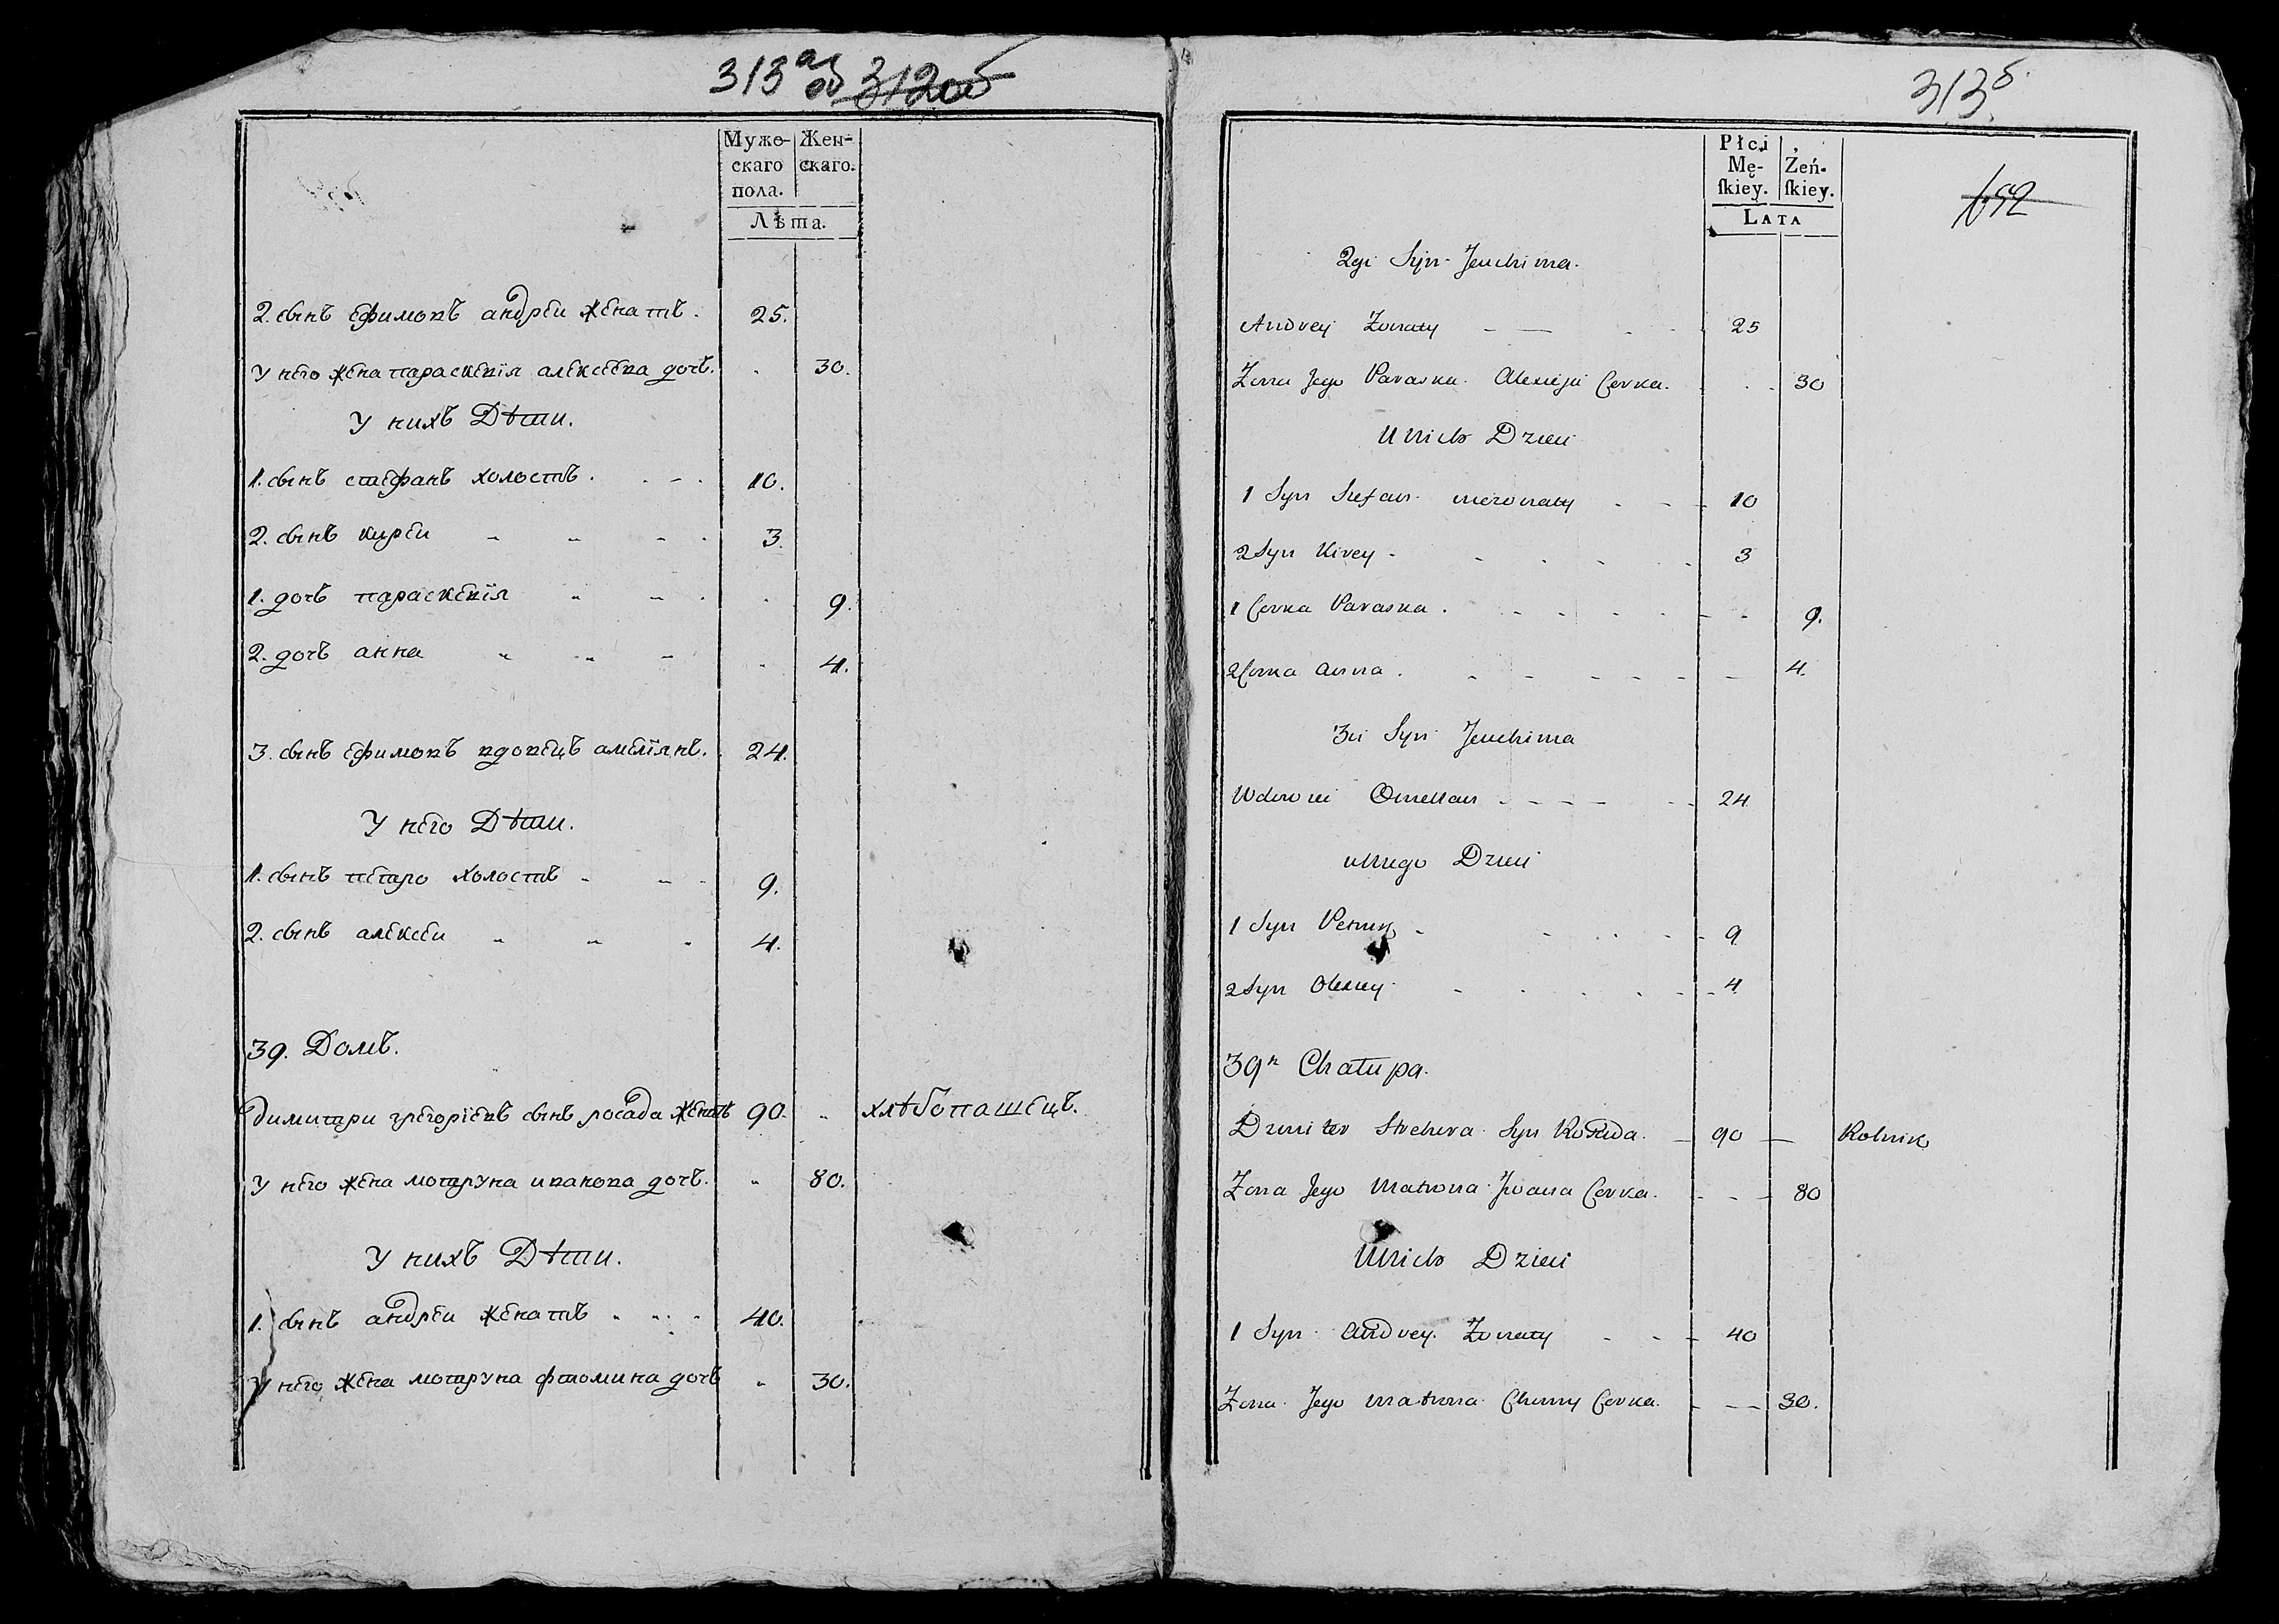 313а
об 312об
Муже-
скаго
пола.
Жен-
скаго.
Лѣта.
2. сынъ ефимовъ андрей женатъ. 25.
У него жена параскевія алексеева дочь. 30.
У нихъ Дѣти.
1. сынъ стефанъ холостъ. 10.
2. сынъ кирей 3.
1. дочь параскевія 9.
2. дочь анна 4.
3. сынъ ефимовъ вдовецъ амеліянъ. 24.
У него Дѣти.
1. сынъ петро холостъ 9.
2. сынъ алексеи 4.
39. Домъ.
димитри григоріевъ сынъ росада женатъ 90. хлѣбопашецъ.
У него жена мотруна иванова дочь. 80.
У нихъ Дѣти.
1. сынъ андреи женатъ 40.
У него жена мотруна фтомина дочь 30.
313б.
Płci
Mę-
ſkiey.
Żeń-
ſkiey.
LATA
652
2gi Syn Jeuchima.
Andrey Zonaty 25
Zona Jego Paraska Alexieja Corka. 30
U nich Dzieci
1 Syn Stefan niezonaty 10
2 Syn Kirey 3
1 Corka Paraska. 9.
2 Corka Anna. 4.
3ci Syn Jeuchima
Wdowiec Omellan 24
u niego Dzieci
1 Syn Petruk 9
2 Syn Olexiey 4.
39a Chatupa.
Dmiter Syn Rosada. 90 Rolnik
Zona Jego Matrona Jwana Corka. 80
U nich Dzieci
1 Syn Andrey Zonaty 40
Zona Jego Matrona Chomy Corka. 30.